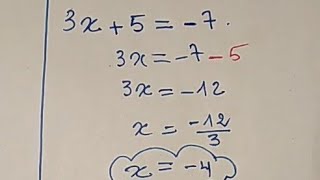 3x + 5 = -7.
3x = -7 - 5
3x = -12
x = -12/3
x = -4